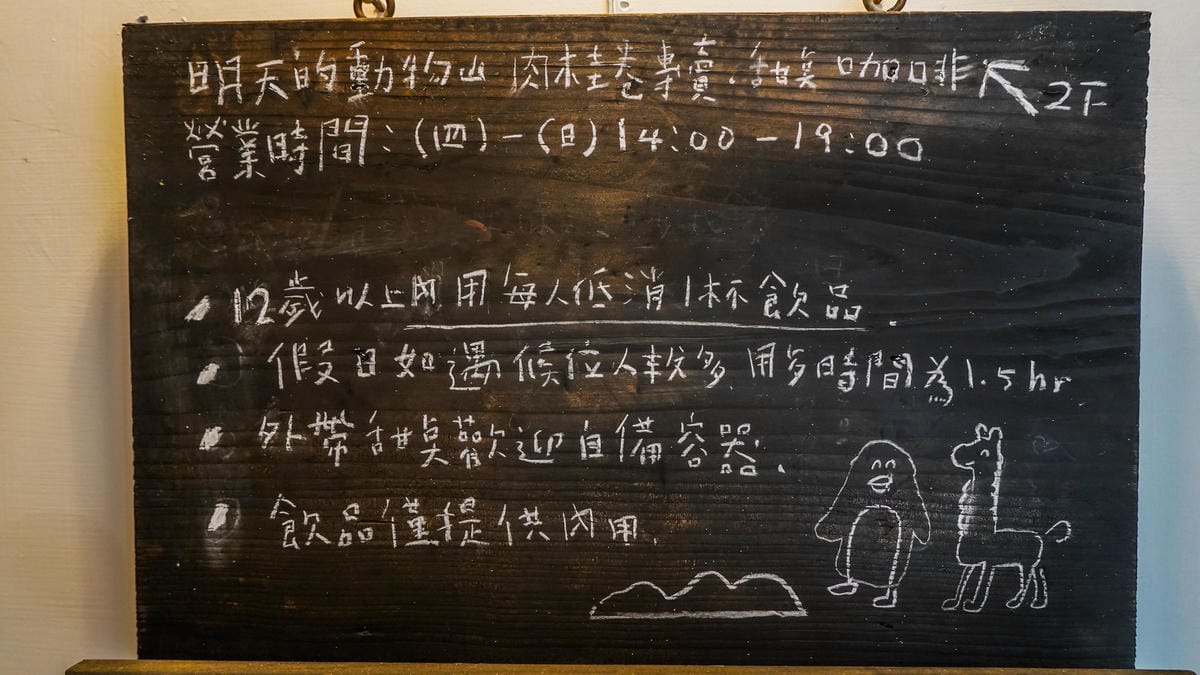 明天的動物山 肉桂卷專賣.甜點咖啡 ↖ 2F
營業時間:(四)-(日)14:00-19:00
12歲以上內用每人低消1杯飲品.
假日如遇候位人較多、用餐時間為1.5hr
外帶甜點歡迎自備容器.
飲品僅提供內用.